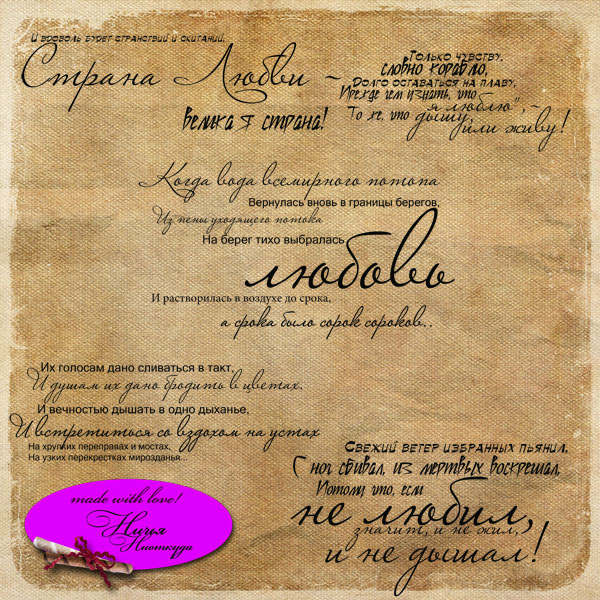 И вдоволь будет странствий и скитаний,
Страна Любви -
великая страна!
Только чувству,
словно кораблю,
Долго оставаться на плаву,
Прежде чем узнать, что
"я люблю", -
То же, что дышу,
или живу!
Когда вода всемирного потопа
Вернулась вновь в границы берегов,
Из пены уходящего потока
На берег тихо выбралась
любовь
И растворилась в воздухе до срока,
а срока было сорок сороков..
Их голосам дано сливаться в такт,
И душам их дано бродить в цветах.
И вечностью дышать в одно дыханье,
И встретиться со вздохом на устах
На хрупких переправах и мостах,
На узких перекрестках мирозданья...
Свежий ветер избранных пьянил,
С ног сбивал, из мертвых воскрешал,
Потому что, если
не любил,
значит, и не жил,
и не дышал!
made with love!
Ничья
Ниоткуда